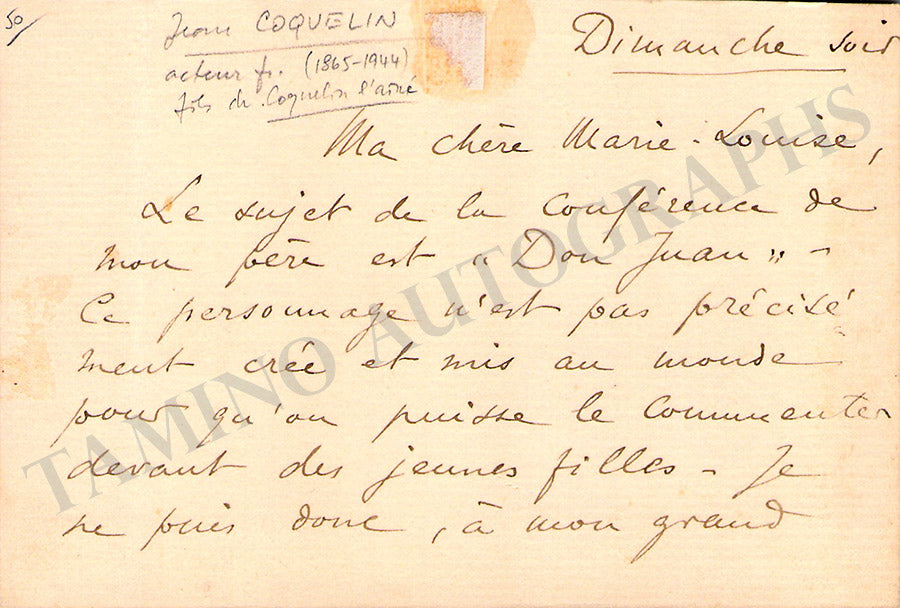 50/
Jean COQUELIN
acteur fr. (1865-1944)
fils de Coquelin l'aîné
Dimanche soir
Ma chère Marie-Louise,
Le sujet de la conférence de
mon père est "Don Juan" -
Ce personnage n'est pas précisé
ment créé et mis au monde
pour qu'on puisse le commenter
devant des jeunes filles - Je
ne puis donc, à mon grand
TAMINO AUTOGRAPHS